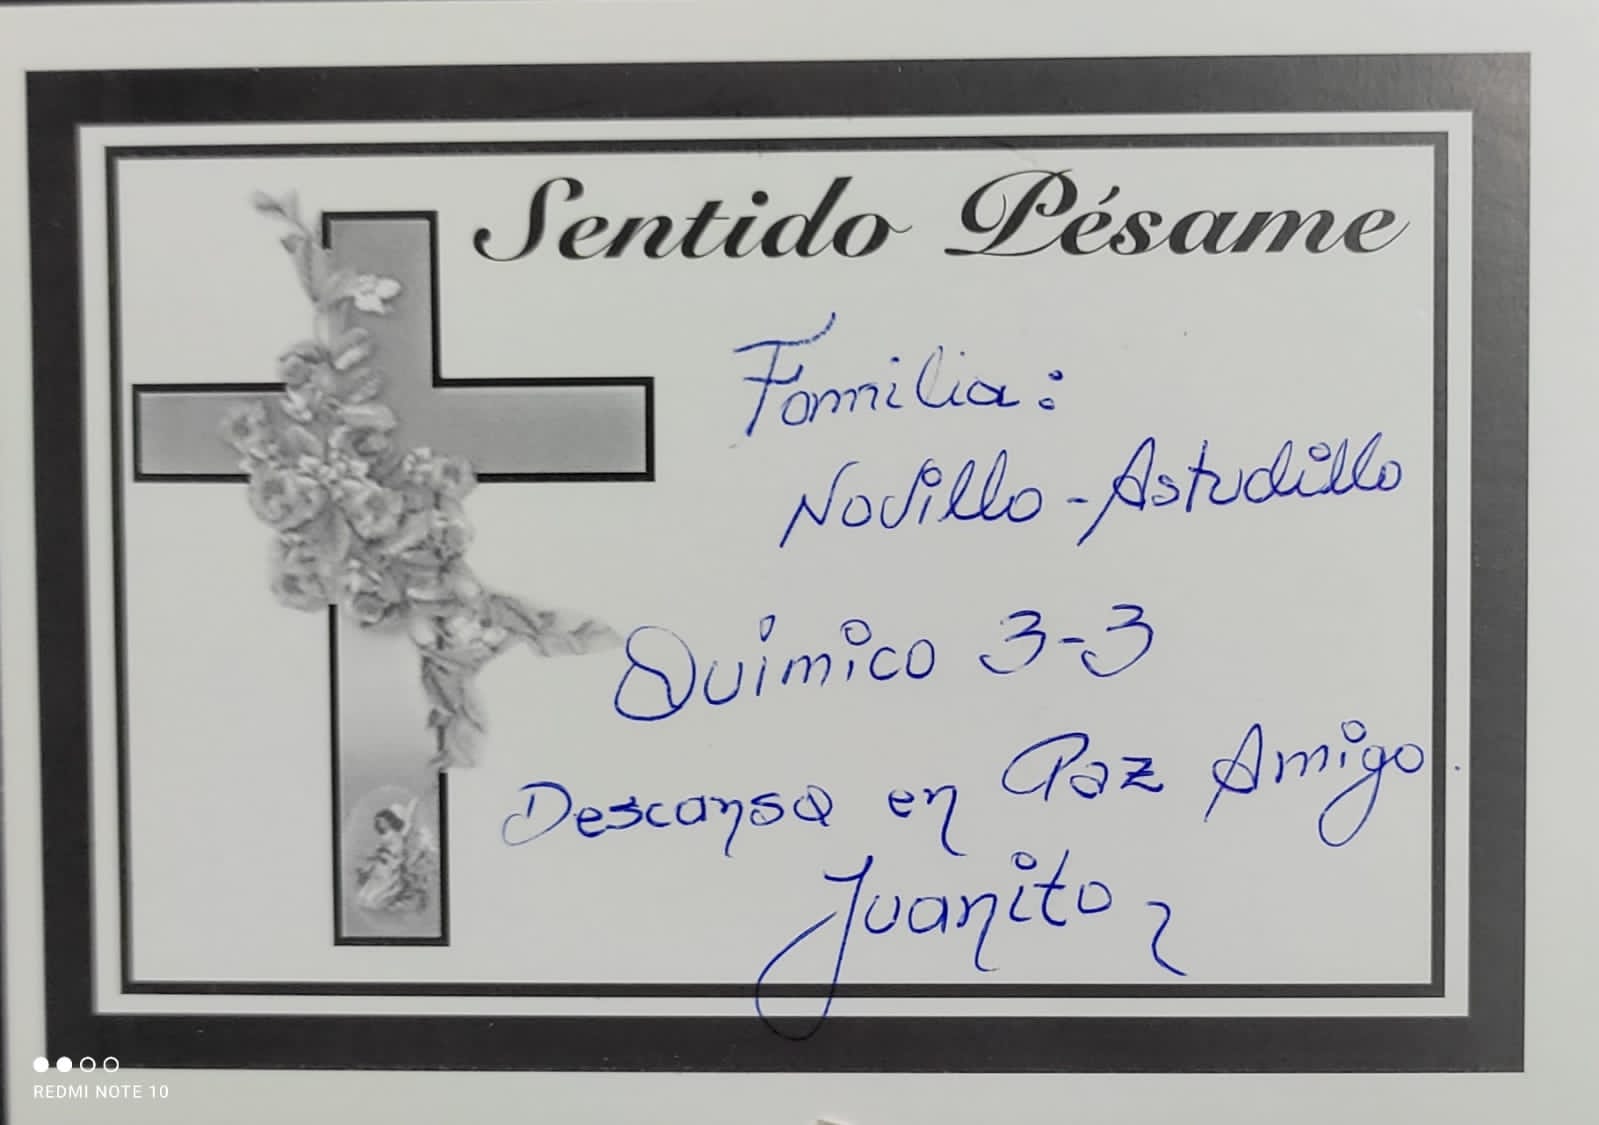 Sentido Pésame
Familia:
Novillo - Astudillo
Quimico 3-3
Descansa en Paz Amigo.
Juanito
REDMI NOTE 10